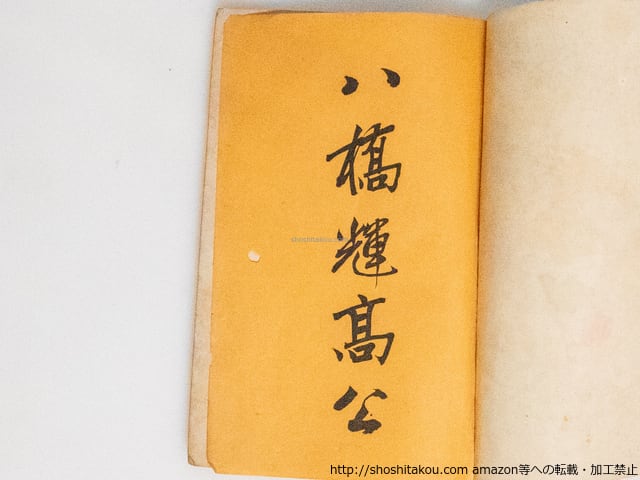 八橋輝髙公
shoshitakou.com
http://shoshitakou.com amazon等への転載・加工禁止